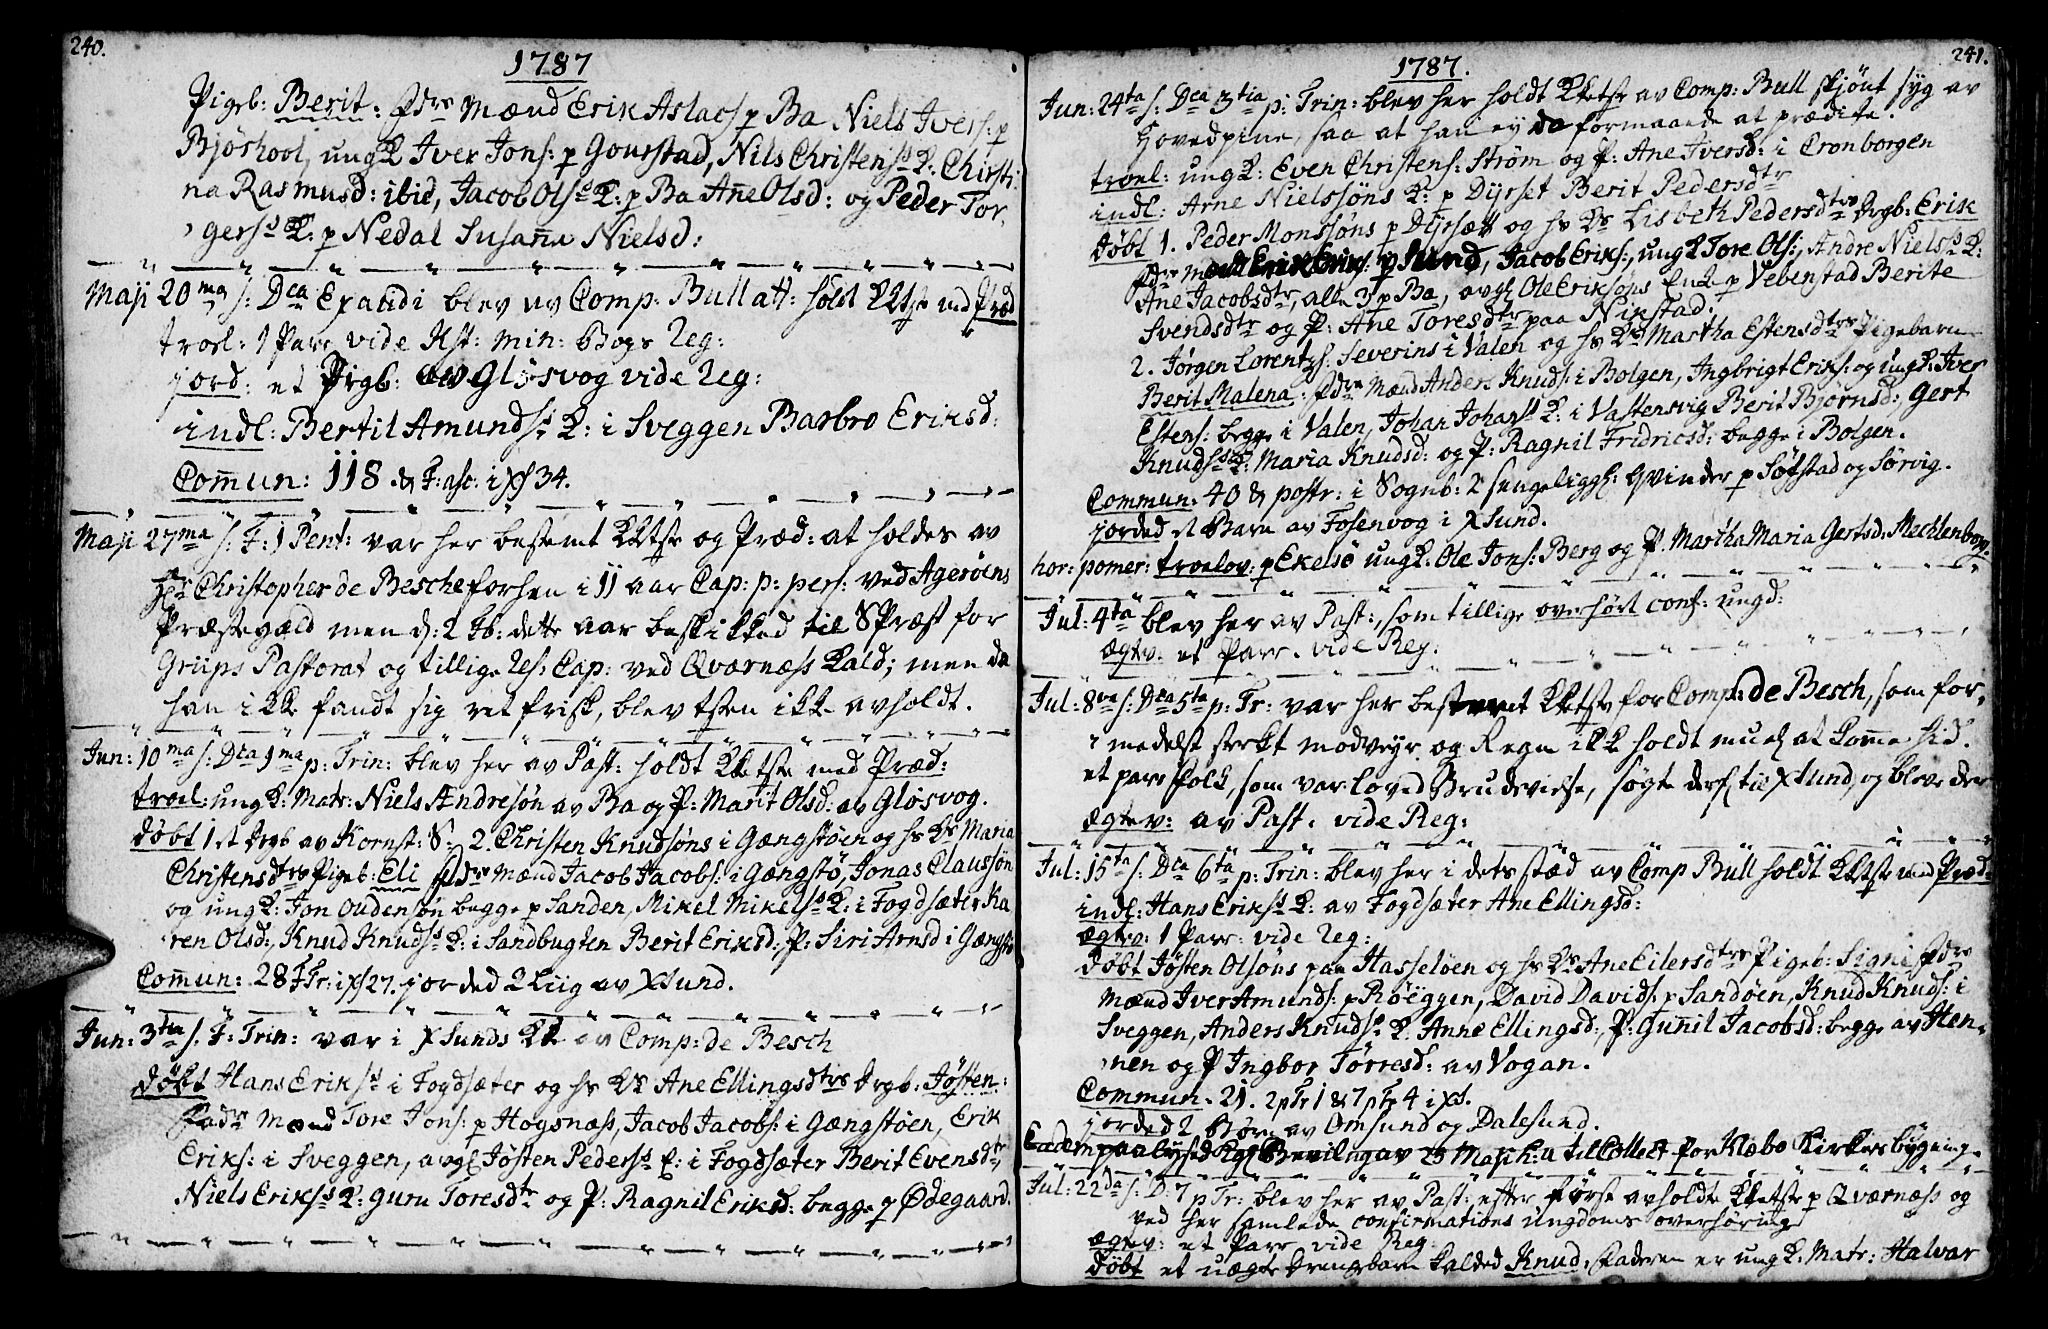 240.
1787
Pigeb: Berit: Fdre Mænd Erik Aslacs: p Ba Niels Ivers: p
Bjørhool, ung K Iver Jons: p Gourstad, Nils Christenss K: Chirsti
na Rasmusd: ibid, Jacob Olss K: p Ba Ane Olsd: og Peder Tor,
gerss K: p Nedal Susanne Nielsd:
Maji 20ma s: Dca Exaudi blev av Comp: Bull att: holdt KKtste med Præd
troel: 1 Parr vide Kst: min: Bogs Reg:
jord: et Pigb: av Gløsvog vide Reg:
indl: Bertil Amunds: K: i Sveggen Barbro Eriksd:
Comun: 118 & F: asc: i XS 34.
Maji 27ma s: F: 1 Pent: var her bestemt KKtste og Præd: at holdes av
Hr Christopher de Besche forhen i 11 aar Cap: p: pers: ved Agerøens
Præstegæld men d: 2 Fb: dette aar beskikked til SPræst for
Griips Pastorat og tillige Res: Cap: ved Qværnæss Kald; men da
han ikke fandt sig ret frisk, blev tsten ikke avholdt.
Jun: 10ma s: Dca 1ma p: Trin: blev her av Past: holdt KKtste med Præd:
troel: ung K: Matr: Niels Andresøn av Ba og P: Marit Olsd: av Gløsvog.
døbt 1 st Drgb av Kornst: S: 2. Christen Knudsøns i Gængstøen og hs Ks Maria
Christensdtrs Pigeb: Eli Fdre Mænd Jacob Jacobs: i Gængstø, Jonas Claussøn
og ung K: Jon Oudensøn begge p Sanden, Mikel Mikelss K: i Fogdsæter Ka
ren Olsd:, Knud Knudss K: i Sandbugten Berit Eriksd:, P: Siri Arnsd i Gængstø
Comun: 28 F Tr: i XS 27. jorded 2 Liig av XSund.
Jun: 3tia s. F: Trin: var i XSunds KK av Comp: de Besch
døbt Hans Erikss i Fogdsæter og hs Ks Ane Ellingsdtrs Drgb: Jøsten:
Fadre Mænd Tore Jons: p Høgsnæss, Jacob Jacobs: i Gængstøen, Erik
Eriks: i Sveggen, avgl Jøsten Pederss E: i Fogdsæter Berit Evensdtr,
Niels Erikss K: Guru Toresdtr og P: Ragnil Eriksd: begge p Ødegaard.
241.
1787.
Jun: 24ta s: Dca 3tia p: Trin: blev her holdt KKtste av Comp: Bull skjønt syg av
Hovedpine, saa at han ey da formaaede at prædike.
troel: ung K: Even Christens: Strøm og P: Ane Iversd: i Cronborgen
indl: Arne Nielssøns K: p Dyrset Berit Pedersdtr
døbt 1. Peder Monssøns p Dyrsætt og hs Ks Lisbeth Pedersdtrs Drgb: Erik
Fdre Mænd Erik Eriks: p Sund, Jacob Eriks:, ung K Tore Ols:, Andre Nielss K:
Ane Jacobsdtr, alle 3 p Ba, avgl Ole Eriksøns Enk p Vebenstad Berite
Svendsdtr og P: Ane Toresdtr paa Nikstad.
2. Jørgen Lorentzs: Severins i Valen og hs Ks Martha Estensdtrs Pigebarn
Berit Malena: Fdre Mænd Anders Knuds: i Bolgen, Ingbrigt Eriks: og ung K: Iver
Estens: begge i Valen, Johan Johanss K: i Vastensvig Berit Bjørnsd:, Gert
Knudss K: Maria Knudsd: og P: Ragnil Fridricsd: begge i Bolgen.
Commun: 40 & postr: i Sognb: 2 sengeliggl: Qvinder p Søfstad og Sørvig.
jorded st Barn av Fosenvog i XSund.
hor: pomer: troelov: p Ekelsø ung K: Ole Jons: Berg og P. Martha Maria Gertsd: Mechlenborg.
Jul: 4ta blev her av Past:, som tillige overhørt conf: ungd:
ægtv: et Parr. vide Reg:
Jul: 8va s: Dca 5ta p: Tr: var her bestemt KKtste for Comp: de Besch, som for,
medelst sterkt modveyr og Regn ikk holdt muel at komme hid.
et pare Folk, som var loved Brudevielse, søgte derf til XSund, og bleve der
ægtev: av Past. vide Reg:
Jul: 15ta s: Dca 6ta p: Trin: blev her i dets stæd av Comp Bull holdt KKtste med Præd:
indl: Hans Erikss K: av Fogdsæter Ane Ellingsd:
ægtv: 1 Parr: vide Reg:
døbt Jøsten Olsøns paa Hasseløen og hs Ks Ane Eilersdtrs Pigeb: Signi Fdre
Mænd Iver Amunds: p Røeggen, David Davids: p Sandøen, Knud Knuds: i
Sveggen, Anders Knudss K: Anne Ellingsd:, P: Gunil Jacobsd: begge av Hen,
nen og P Ingbor Tørresd: av Vogan.
Commun. 21. 2 p Tr 1 & 7 p Tr 4 i XS.
jorded 2 Børn av Omsund og Dalesund.
Eadem paalyst Kgl Bevilng av 23 Maji h: a til Collect for Klæbo Kirkers bygning.
Jul: 22da s: D: 7 p Tr: blev her av Past: efter først avholdt KKtste p Qværnæss og
ved her samlede confirmations ungdoms overhøring
ægtv: et Parr vide Reg:
døbt et uægte Drengebarn kalded Knud, Faderen er ung K: Matr: Halvar